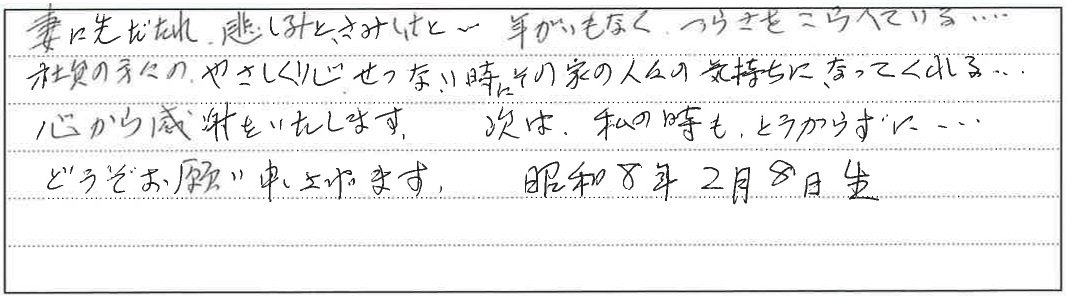 妻に先だたれ、悲しみと、さみしさと〜 年がいもなく、つらさをこらえている‥‥
社員の方々の、やさしい心、せつない時に、その家の人々の気持ちになってくれる‥‥
心から感謝をいたします。 次は、私の時も、とうからずに‥‥
どうぞお願い申し上げます。 昭和8年2月8日生